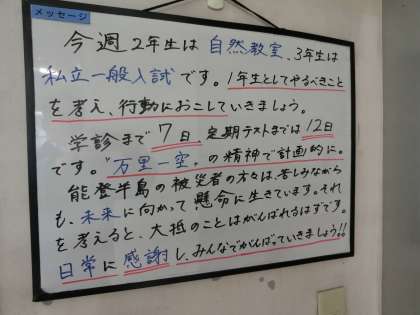 メッセージ
今週2年生は自然教室、3年生は
私立一般入試です。1年生としてやるべきこと
を考え、行動におこしていきましょう。
学診まで7日、定期テストまでは12日
です。"万里一空"の精神で計画的に。
能登半島の被災者の方々は、苦しみながら
も、未来に向かって懸命に生きています。それ
を考えると、大抵のことはがんばれるはずです。
日常に感謝し、みんなでがんばっていきましょう!!